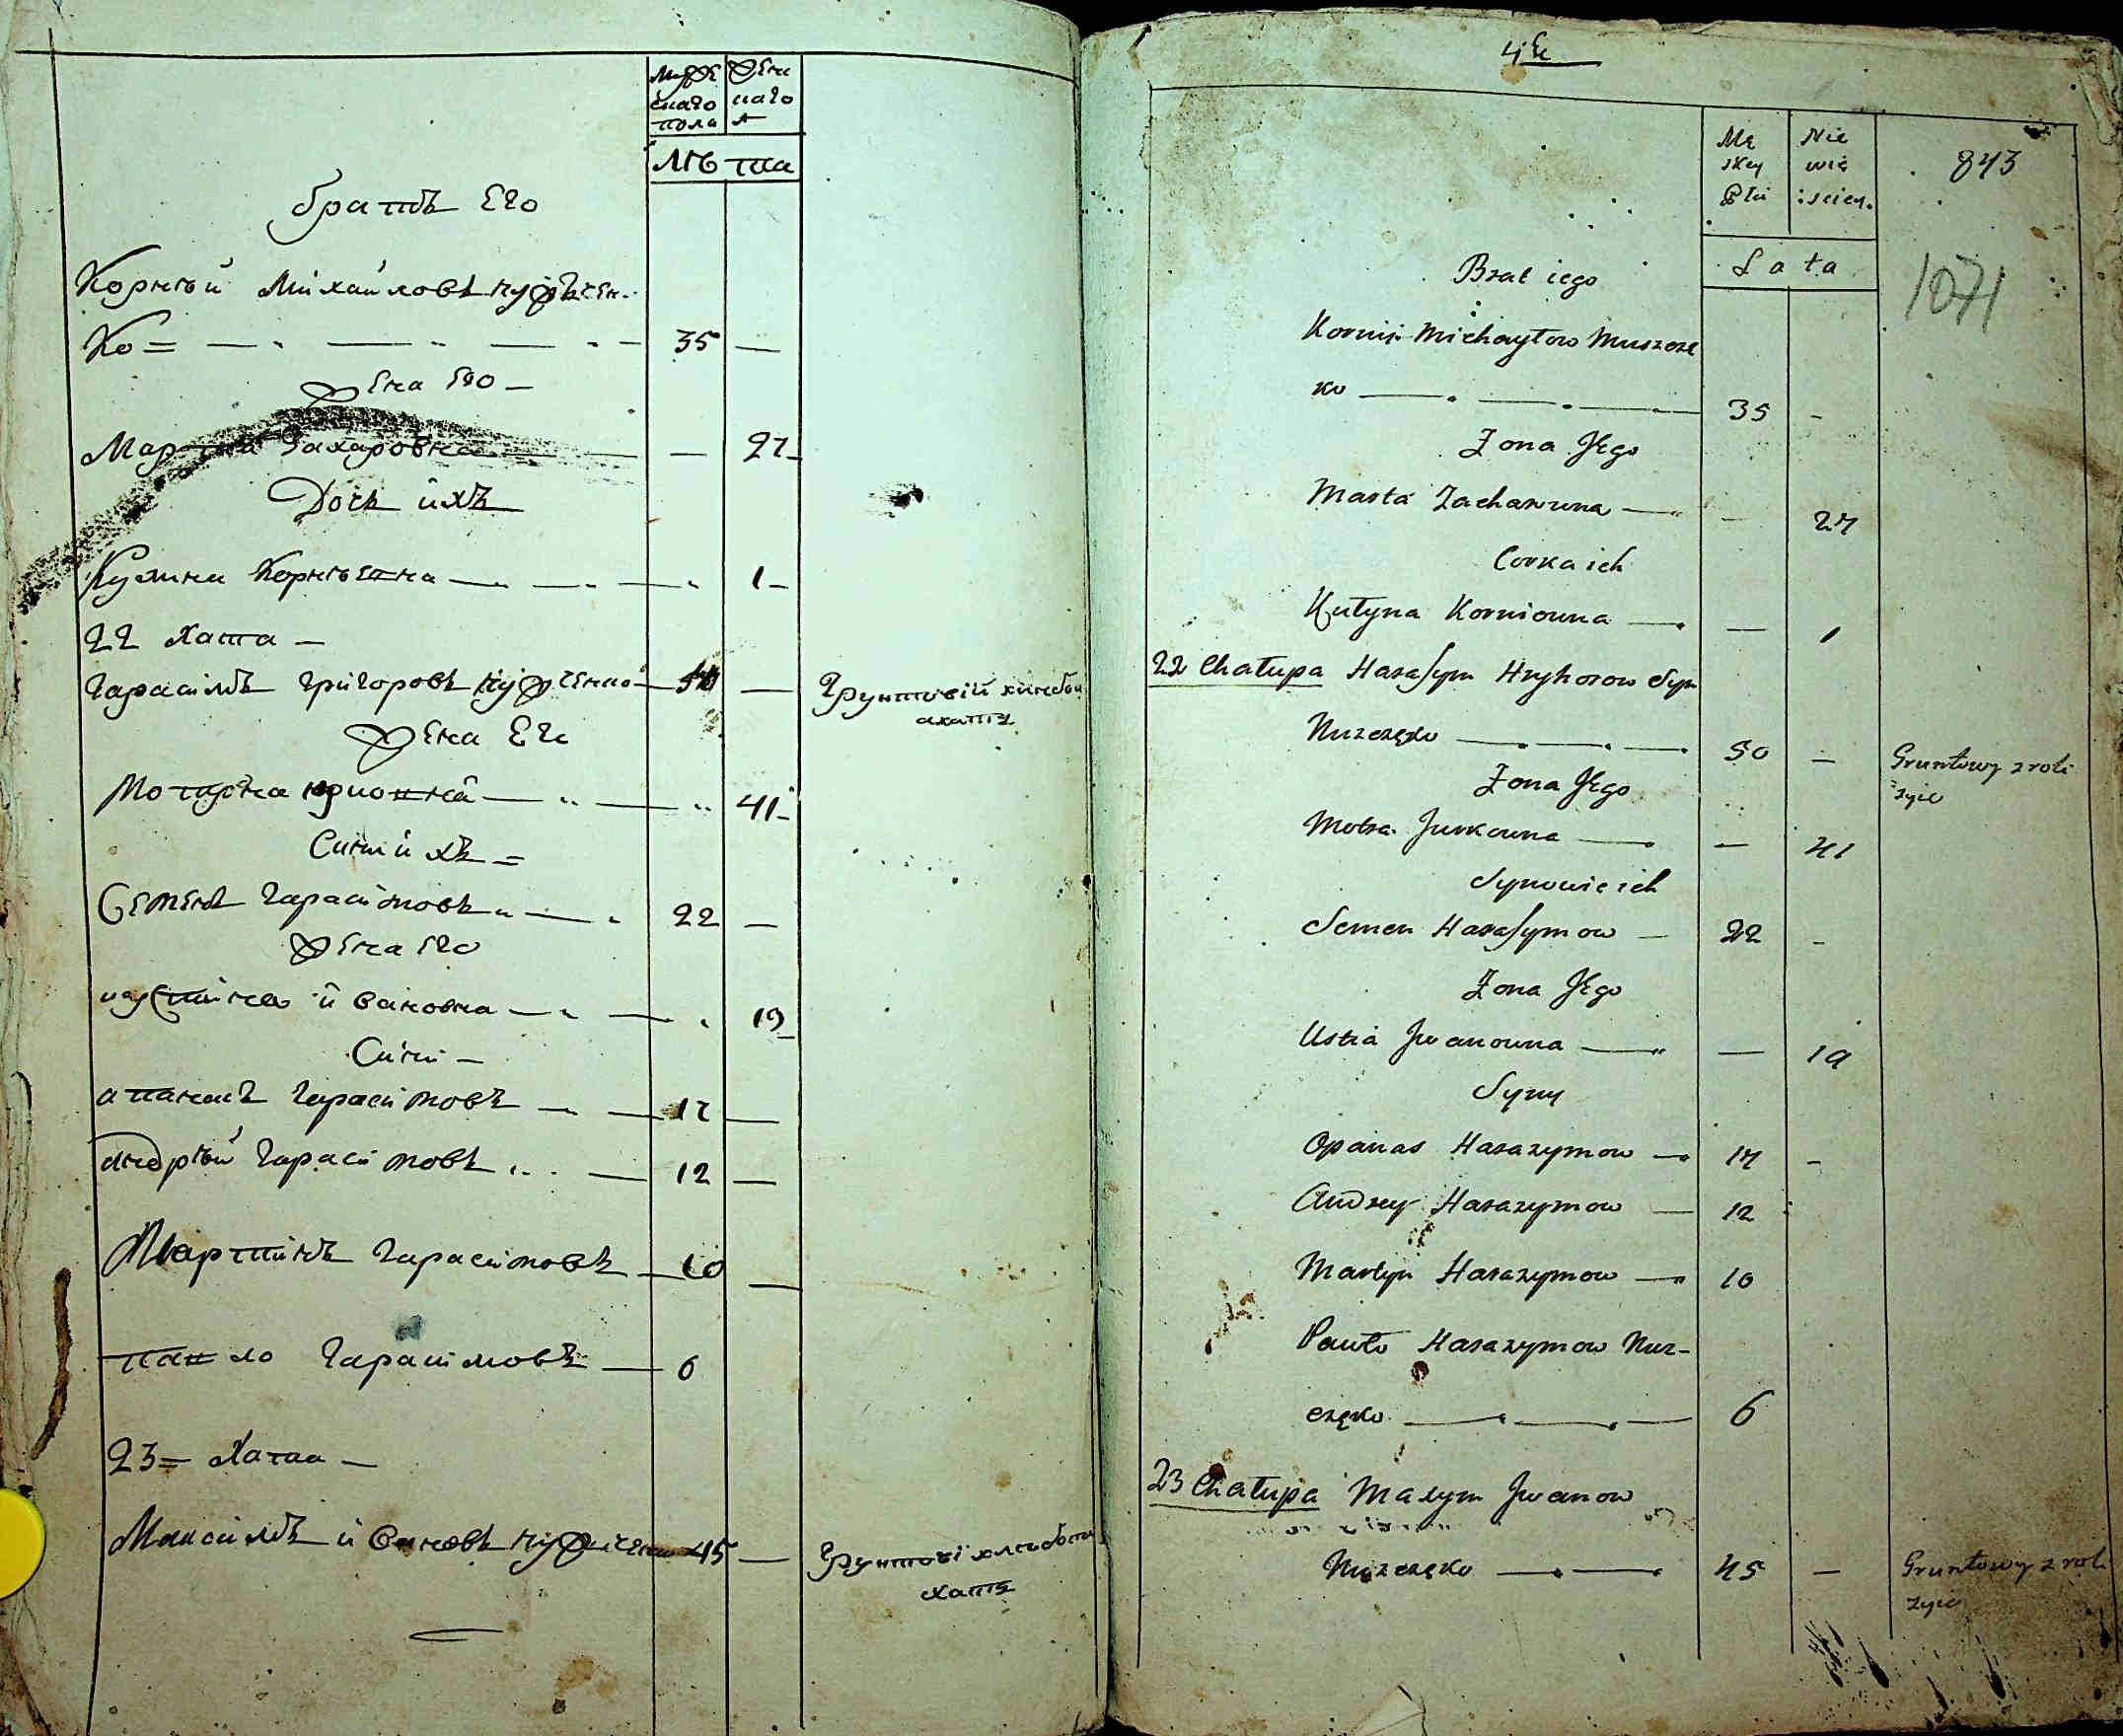 Муже Жен
скаго наго
пола
лѣ та
братъ Его
Корнѣй Михайловъ нужчен-
ко = 35 —
жена Его —
Марта Захаровна — 27
Дочь ихъ
Кулина Корнѣевна — 1
22 хата —
Гарасимъ Григоровъ нужченко 50 —
Жена Его
Мотрона Юрковна — 41
Сини ихъ =
Семенъ Гарасимовъ 22 —
Жена Его
Иустина Ивановна — 19
Сини —
Апанасъ Гарасимовъ — 17 —
Андрѣй Гарасимовъ — 12 —
Мартинъ Гарасимовъ — 10 —
Павло Гарасимовъ — 6
23 = хата —
Максимъ Ивановъ нужченко 45 —
хата
Mę Nie
skey wie
Płci sciey.
Lata
843
1071
Brat iego
Korniy Michayłow Nuszcze
ko — 35 -
Żona Jego
Marta Zacharuwna — - 27
Corka ich
Kułyna Korniowna — — 1
22 Chałupa Harasym Hryhorow Syn
Nuzczęko — 50 — Gruntowy z roli
żyie
Żona Jego
Motra Jurkowna — — 41
Synowie ich
Semen Harasymow — 22 -
Żona Jego
Ustia Jwanowna — — 19
Syny
Opanas Harazymow — 17 -
Andrey Harazymow — 12
Martyn Harazymow — 10
Pawło Harazymow Nuz-
częko — 6
23 Chałupa Maxym Jwanow
Nuzczęko — 45 — Gruntowy z roli
żyie